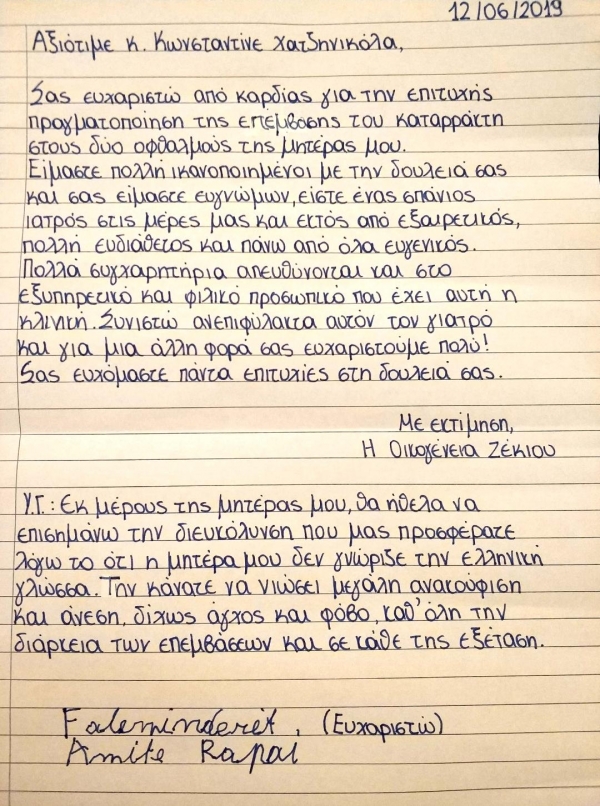 12/06/2019
Αξιότιμε κ. Κωνσταντίνε Χατζηνικόλα,
Σας ευχαριστώ από καρδίας για την επιτυχής
πραγματοποίηση της επέμβασης του καταρράκτη
στους δύο οφθαλμούς της μητέρας μου.
Είμαστε πολλή ικανοποιημένοι με την δουλειά σας
και σας είμαστε ευγνώμων, είστε ένας σπάνιος
ιατρός στις μέρες μας και εκτός από εξαιρετικός,
πολλή ευδιάθετος και πάνω από όλα ευγενικός.
Πολλά συγχαρητήρια απευθύνονται και στο
εξυπηρετικό και φιλικό προσωπικό που έχει αυτή η
κλινική. Συνιστώ ανεπιφύλακτα αυτόν τον γιατρό
και για μια άλλη φορά σας ευχαριστούμε πολύ!
Σας ευχόμαστε πάντα επιτυχίες στη δουλειά σας.
Με εκτίμηση,
Η Οικογένεια Ζέκιου
Υ.Γ.: Εκ μέρους της μητέρας μου, θα ήθελα να
επισημάνω την διευκόλυνση που μας προσφέρατε
λόγω το ότι η μητέρα μου δεν γνώριζε την ελληνική
γλώσσα. Την κάνατε να νιώσει μεγάλη ανακούφιση
και άνεση, δίχως άγχος και φόβο, καθ' όλη την
διάρκεια των επεμβάσεων και σε κάθε της εξέταση.
Faleminderit, (Ευχαριστώ)